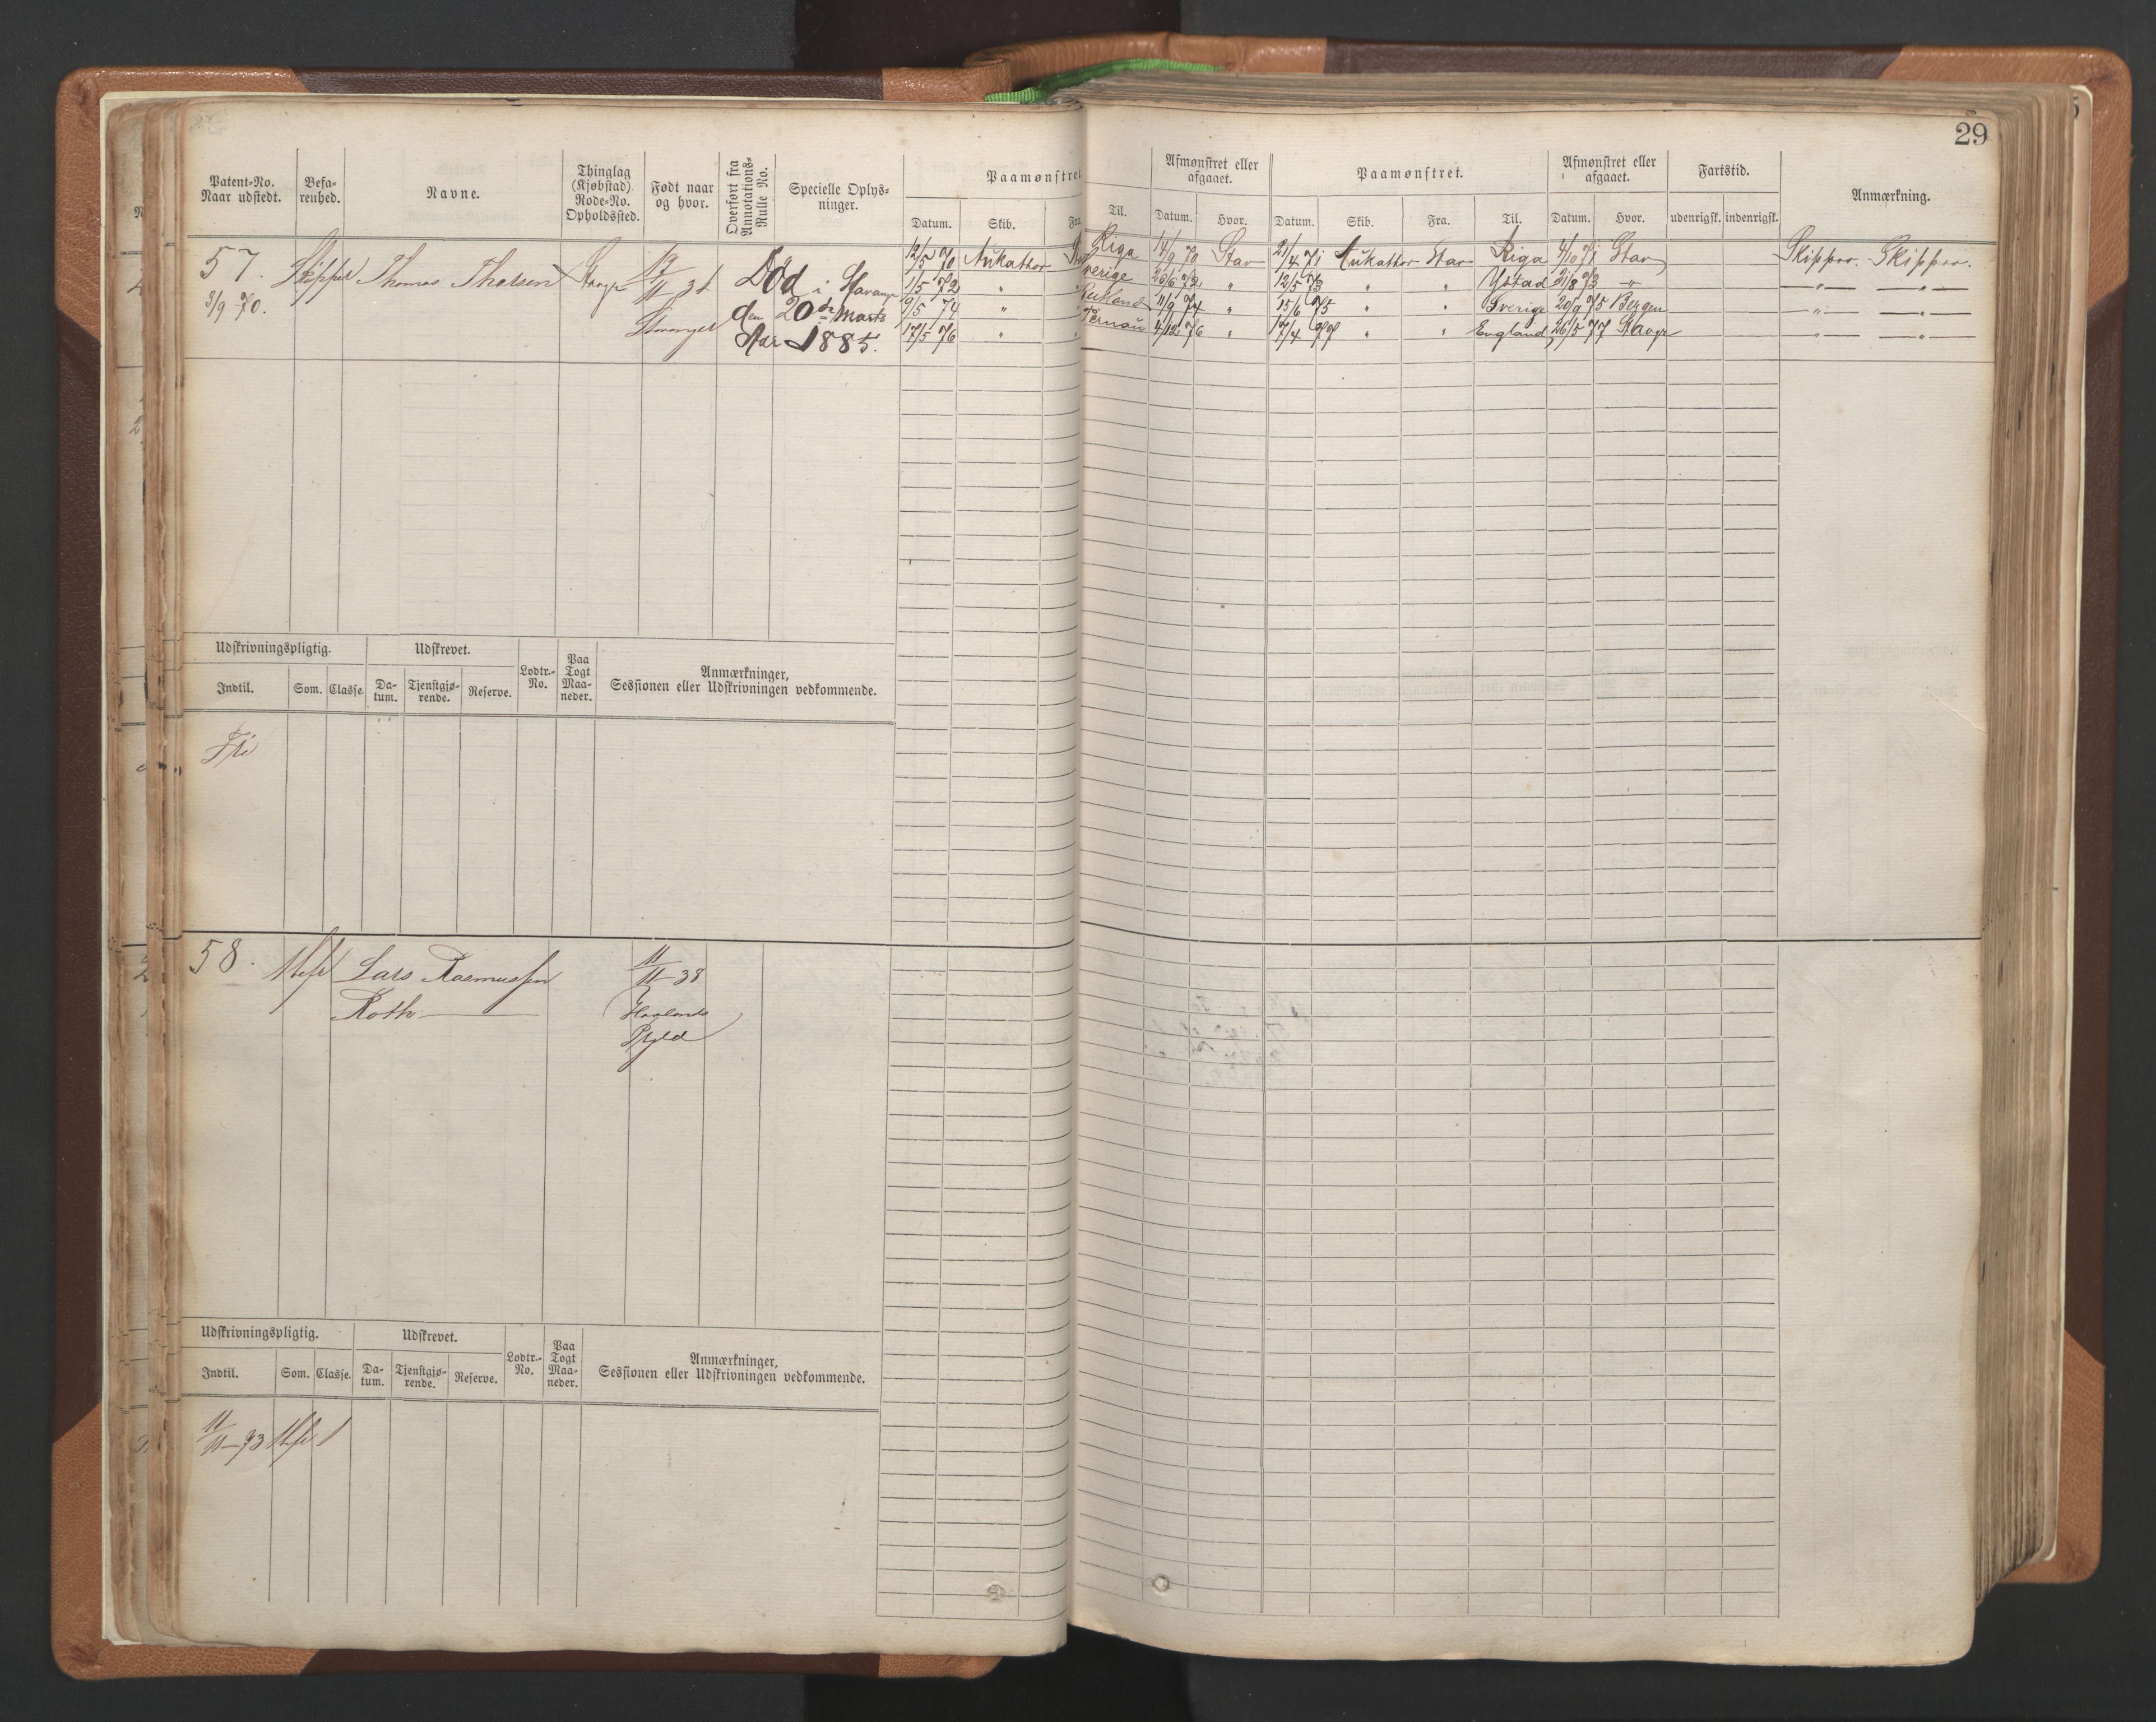 29
Patent-No. Naar udstedt.
Befarenhed.
Navne.
Thinglag (Kjøbstad). Rode-No. Opholdssted.
Født naar og hvor.
Overført fra Annotations-Rulle No.
Specielle Oplysninger.
Paamønstret
Datum. Skib. Fra.
Til.
Afmønstret eller afgaaet.
Datum. Hvor.
Paamønstret.
Datum. Skib. Fra. Til.
Afmønstret eller afgaaet.
Datum. Hvor.
Fartstid.
udenrigsk. indenrigsk.
Anmærkning.
57. Skipper Thomas
3/9 70.
Død i Stavanger
den 20de Marts
Aar 1885.
12/5 70 Riga 14/9 70 Stav 21/4 71 Stav Riga 4/10 71 Stav Skipper. Skipper.
1/5 72 " Sverige " 12/5 73 " " Ystad 31/8 73 —"— —"— —"—
9/5 74 " 11/9 74 " 15/6 75 " " Sverige 20/9 75 Bergen —"— —"—
17/5 76 " " Pernau 4/12 76 " 17/4 77 " " England 26/5 77 Stavgr —"— —"—
Udskrivningspligtig. Udskrevet. Lodtr.-No. Paa Togt Maaneder. Anmærkninger, Sessionen eller Udskrivningen vedkommende.
Indtil. Som. Classe. Datum. Tjenstgjørende. Reserve.
Fri
58. Lars Rasmussen
Roth.
11/11-38
Udskrivningspligtig. Udskrevet. Lodtr.-No. Paa Togt Maaneder. Anmærkninger, Sessionen eller Udskrivningen vedkommende.
Indtil. Som. Classe. Datum. Tjenstgjørende. Reserve.
11/11-73 1